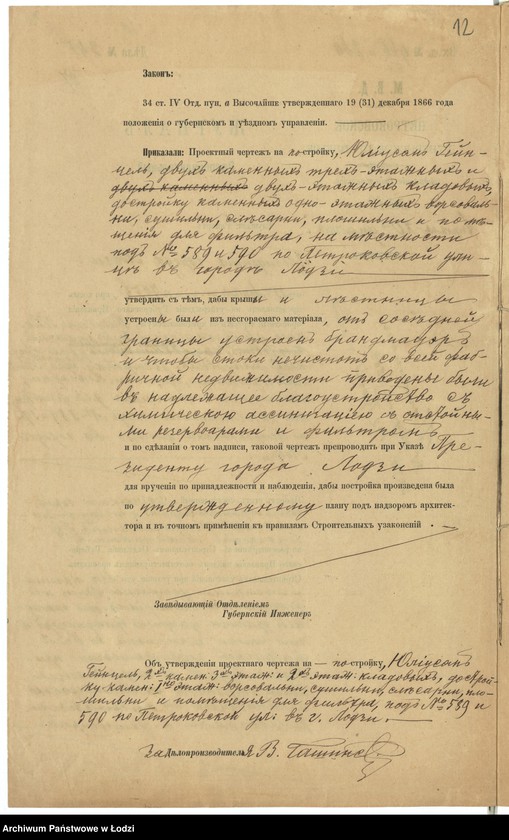 12
Законъ:
34 ст. IV Отд. пун. а Высочайше утвержденнаго 19 (31) декабря 1866 года
положенія о губернскомъ и уѣздномъ управленіи.
Приказали: Проектный чертежъ на по-стройку, Юліусомъ Гейн-
цель, двухъ каменныхъ трехъ-этажныхъ и
двухъ каменныхъ двухъ-этажныхъ кладовыхъ,
достройку каменныхъ одно-этажныхъ ворсоваль-
ни, сушильни, слѣсарни, плюшильни и помѣ-
щенія для фильтра, на мѣстности
подъ №№ 589 и 590 по Петроковской ули-
цѣ въ городѣ Лодзи
утвердить съ тѣмъ, дабы крыши и лѣстницы
устроены были изъ несгораемаго матеріала, отъ сосѣдней
границы устроенъ брандмауръ
и чтобы стоки нечистотъ со всей фаб-
ричной недвижимости приведены были
въ надлежащее благоустройство съ
химическою ассинизаціею съ отстойны-
ми резервоарами и фильтромъ
и по сдѣланіи о томъ надписи, таковой чертежъ препроводить при Указѣ Пре-
зиденту города Лодзи
для врученія по принадлежности и наблюденія, дабы постройка произведена была
по утвержденному плану подъ надзоромъ архитек-
тора и въ точномъ примѣненіи къ правиламъ Строительныхъ узаконеній.
Завѣдывающій Отдѣленіемъ
Губернскій Инженеръ
Объ утвержденіи проектнаго чертежа на — по-стройку, Юліусомъ
Гейнцель, 2хъ камен. 3хъ этаж: и 2хъ этаж: кладовыхъ, достройку
камен: 1но этаж: ворсовальни, сушильни, слѣсарни, плю-
шильни и помѣщенія для фильтра, подъ №№ 589 и
590 по Петроковской ул: въ г. Лодзи.
За Дѣлопроизводителя В.
Archiwum Państwowe w Łodzi